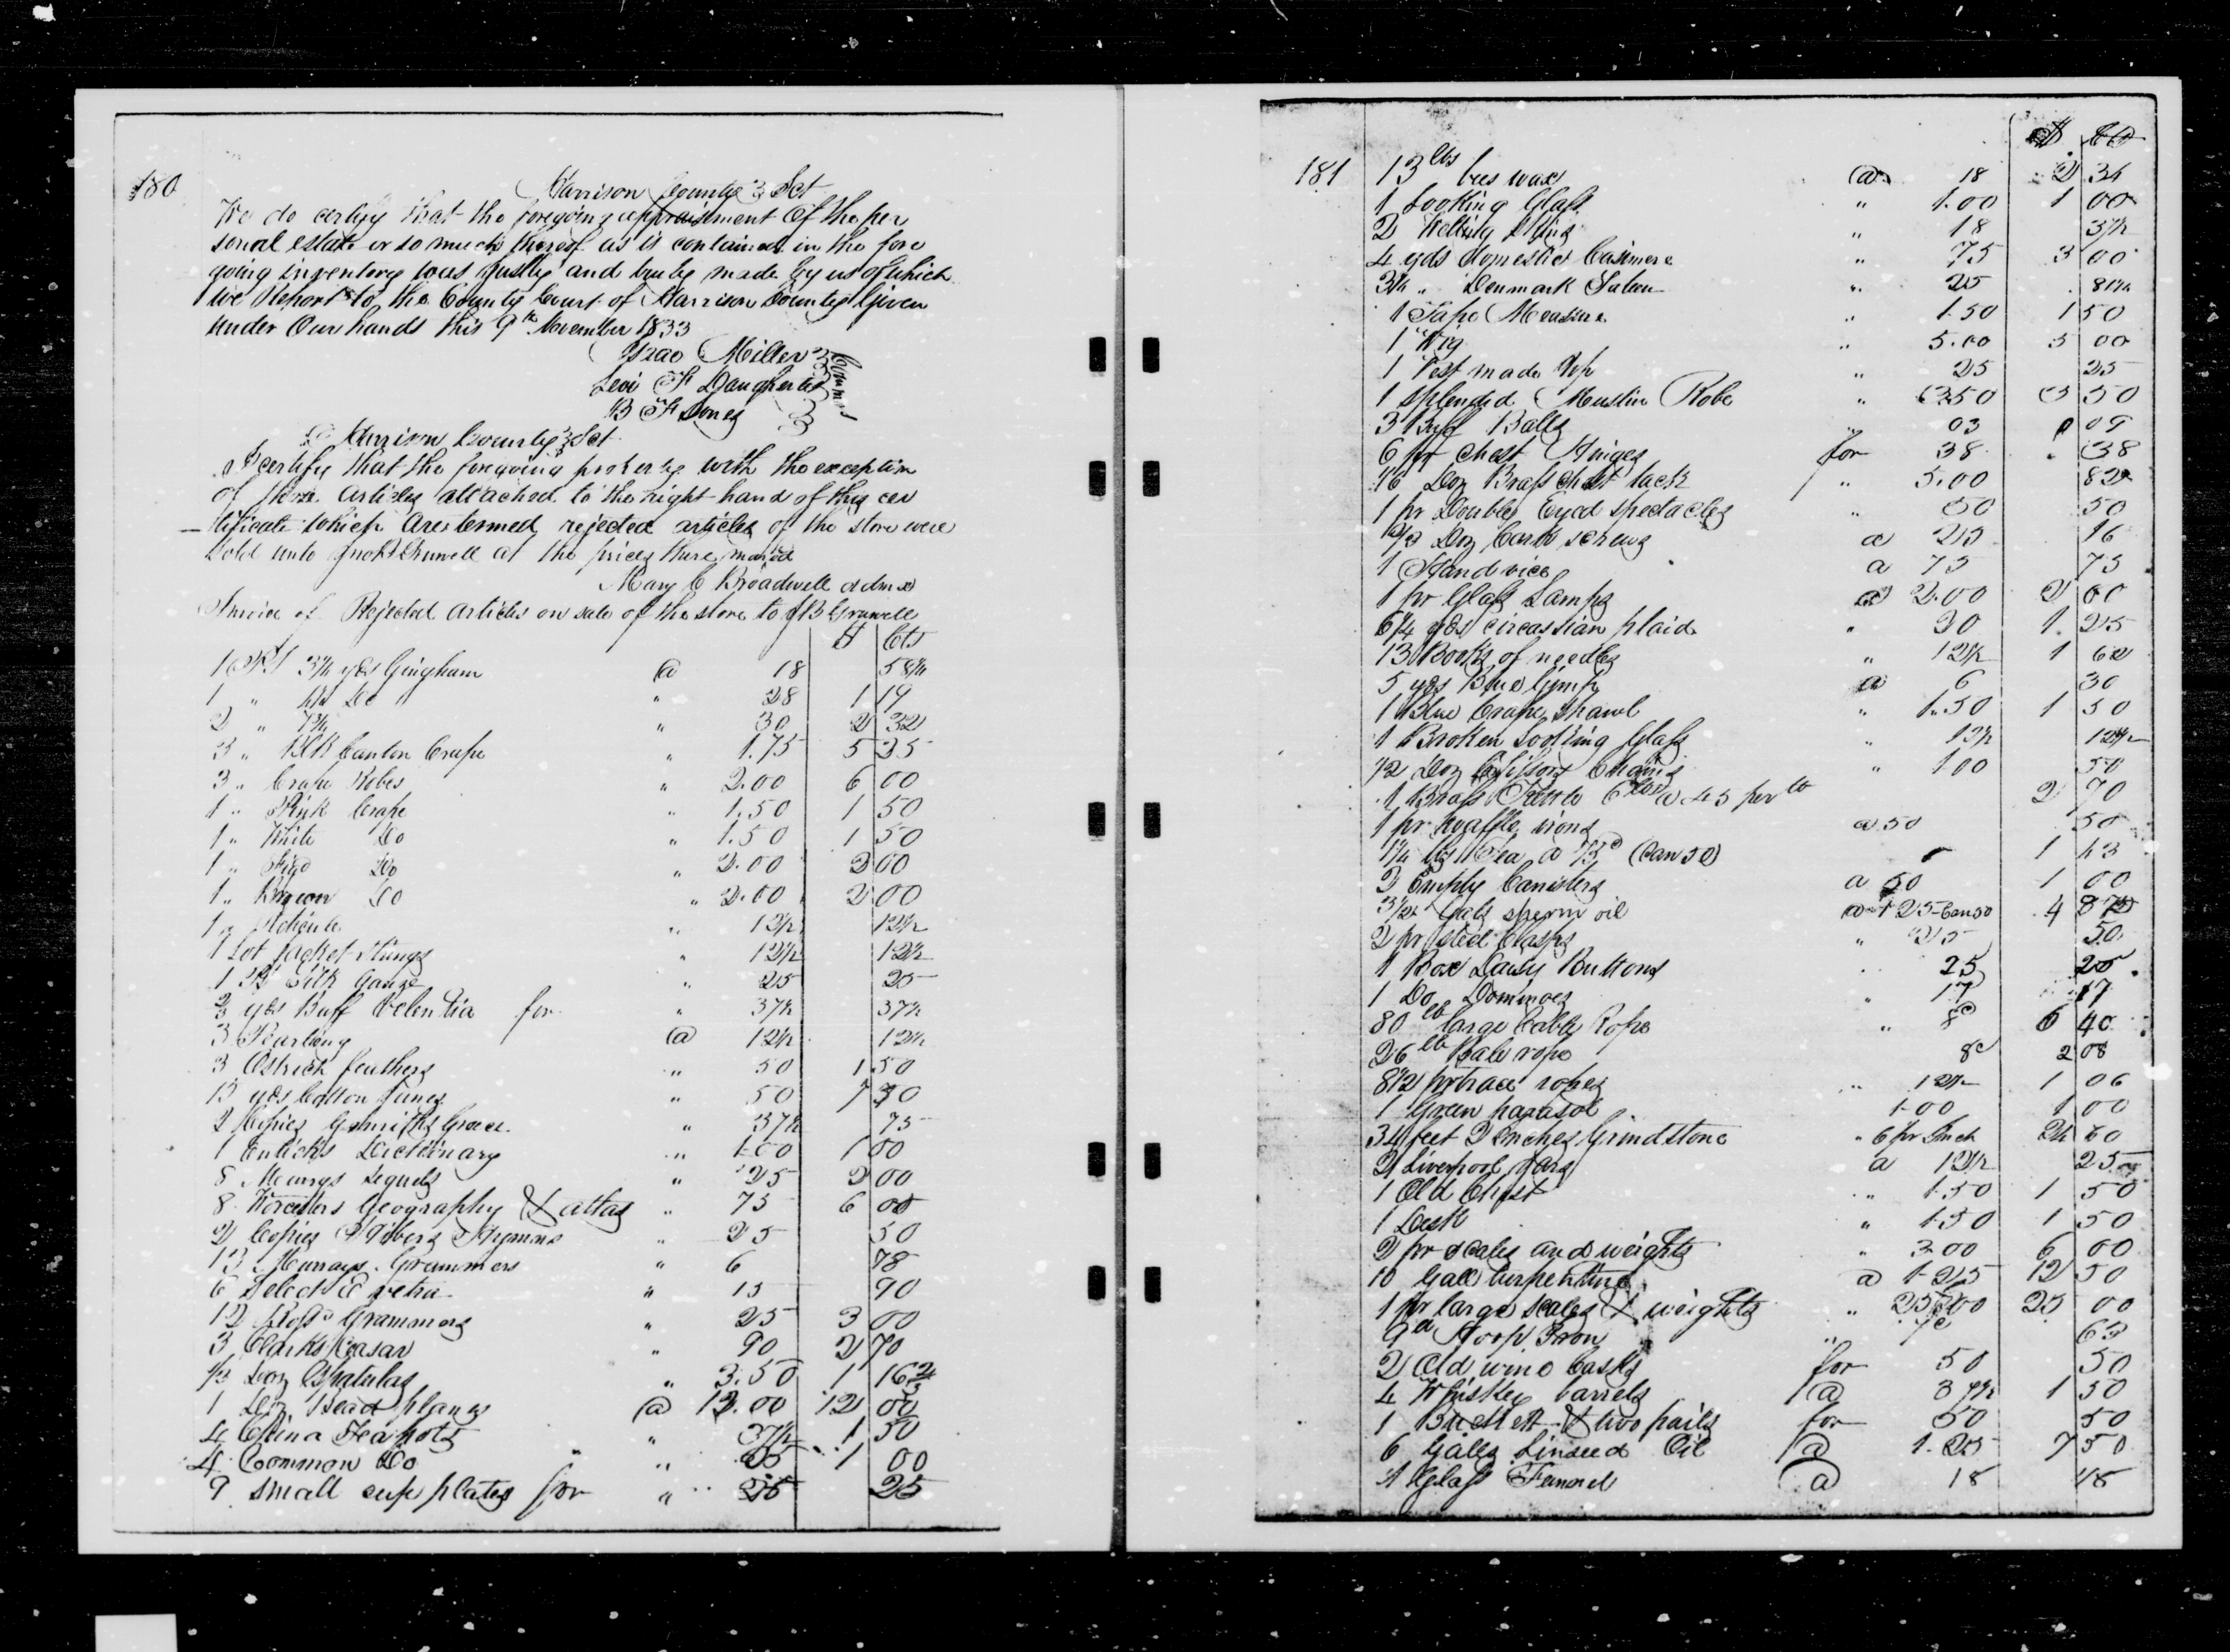 180
Harrison County Sct
We do certify that the foregoing appraisment of the per
sonal estate or so much thereof as is contained in the fore
going inventory was justly and truly made by us of which
we Report to the County Court of Harrison County Given
under Our hands this 9th November 1833
Isaac Miller
Levi F Daugherty
B F Jones
Comms
Harrison County Sct
I certify that the foregoing property with the exception
of those articles attached to the right hand of this cer
tificate which are termed rejected articles of the store were
sold unto Gruwell at the prices there marked
Mary C Broadwell admx
Invoice of Rejected articles on sale of the store to J B Gruwell
$ Cts
1 Ps 3¼ yds Gingham @ 18 58½
1 " Do " 28 1 19
2 " 7¾ " 30 2 32
3 " Blk Canton Crape " 1.75 5 25
3 " Crape Robes " 2.00 6 00
1 " Pink Crape " 1.50 1 50
1 " White Do " 1.50 1 50
1 " Figd Do " 2.00 2 00
1 " Brown Do " 2.00 2 00
1 " Reticule " 12½ 12½
1 Lot Jacket Strings " 12½ 12½
1 Ps Silk Gauze " 25 25
¾ yds Buff Valentia for " 37½ 37½
3 @ 12½ 12½
3 Ostrich feathers " 50 1 50
15 yds Cotton Jeans " 50 7 50
2 Copies Goldsmiths Greece " 37½ 75
1 Enticks Dictionary " 1.00 1 00
8 Murrays Sequels " 25 2 00
8 Worcesters Geography & atlas " 75 6 00
2 Copies Hymns " 25 50
13 Murrays Grammers " 6 78
6 Select E vetri " 15 90
12 Ross Grammers " 25 3 00
3 Clarks Ceasar " 90 2 70
⅓ Doz Spatulas " 3.50 1 16⅔
1 Doz Bead planes @ 12.00 12 00
4 China Teapots " 37½ 1 50
4 Common Do " 25 1 00
9 small cup plates for " 25 25
181
$ Cts
13 lbs bees wax @ 18 2 34
1 Looking Glass " 1.00 1 00
2 " 18 37½
4 yds domestic Casimere " 75 3 00
3¼ " Denmark Sateen " 25 81¼
1 Tape Measure " 1.50 1 50
1 Wig " 5.00 5 00
1 Vest made up " 25 25
1 Splendid Muslin Robe " 3.50 3 50
3 Buff Balls " 03 09
6 pr Chest Hinges for 38 38
16 Doz Brass chest tack " 5.00 82
1 pr Double Eyed spectacles " 50 50
⅔ Doz Cork screws a 25 16
1 Hand vice a 75 75
1 pr Glass Lamps a 2.00 2 00
6¼ yds circassian plaid " 20 1 25
13 Books of needles " 12½ 1 62
5 yds Blue Gimp a 6 30
1 Blue Crape Shawl " 1.50 1 50
1 Broken Looking Glass " 12½ 12½
½ Doz Scissors Chains " 1 00 50
1 Brass Kettle 6 lbs a 45 per lb 2 70
1 pr waffle irons a 50 50
1¼ lbs Tea a 75c (Can 50) 1 43
2 Empty Canisters a 50 1 00
3½ Gals sperm oil a 1 25 Can 50 4 87½
2 pr steel Clasps " 25 50
1 Box Daisy Buttons 25 25
1 Do Dominoes " 17 17
80 lb large Cable Rope " 8c 6 40
26 lb Bale rope 8c 2 08
8½ pr trace ropes " 12½ 1 06
1 Green parasol 1.00 1 00
34 feet 2 inches Grindstone " 6 pr Inch 24 60
2 Liverpool Jars a 12½ 25
1 Old Chest " 1.50 1 50
1 Desk " 1.50 1 50
2 pr scales and weights " 3.00 6 00
10 Gall turpentine a 1.25 12 50
1 pr large scales & weights " 25.00 25 00
9 Hoop Iron " 7c 63
2 Old wine Casks for 50 50
4 Whiskey barrels @ 37½ 1 50
1 Buckett & two pails for 50 50
6 Galls Linseed Oil @ 1.25 7 50
1 Glass Funnel @ 18 18